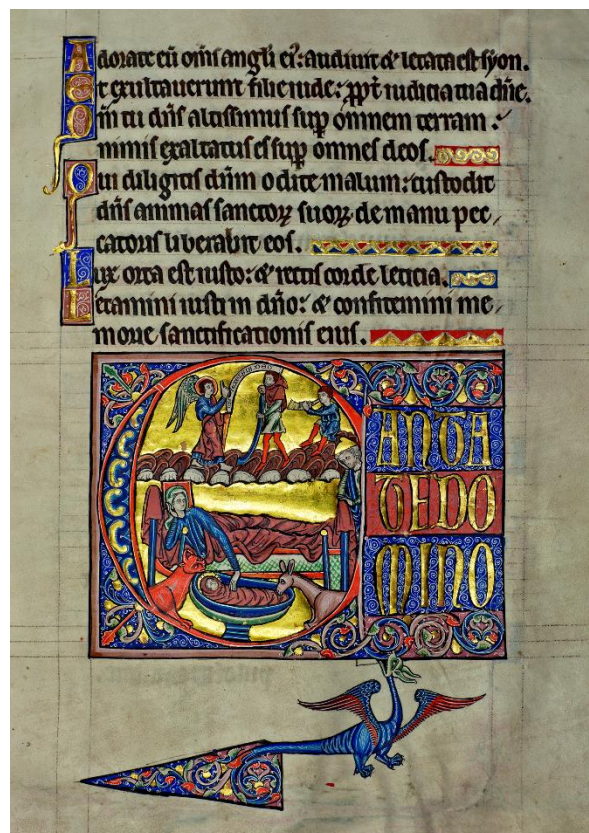 Adorate eū om̄s angli ei᷒: audiuit & letata est syon.
Et exultauerunt filie iude: ꝓpt̄ iudicia tua dn̄e.
Qm̄ tu dn̄s altissimus sup omnem terram:
nimis exaltatus es sup omnes deos.
Qui diligitis dn̄m odite malum: custodit
dn̄s animas sanctoꝝ suoꝝ de manu pec
catoris liberabit eos.
Lux orta est iusto: & rectis corde leticia.
Letamini iusti in dn̄o: & confitemini me
morie sanctificationis eius.
CANTA
TE DO
MINO